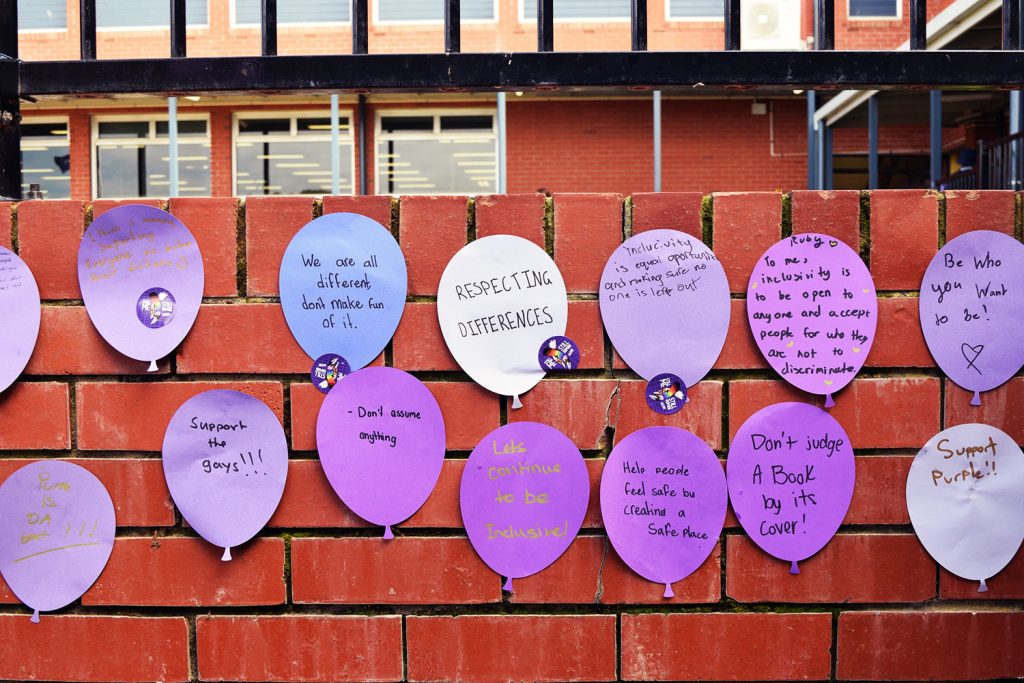 I think it means
Supporting
Everyone no matter
We are all
different,
dont make fun
of it.
RESPECTING
DIFFERENCES
Inclucivity
is equal oportunities
and making safe no
one is left out
Ruby
To me,
inclusivity is
to be open to
anyone and accept
people for who they
are not to
discriminate.
Be Who
you Want
to be!
Support
the
gays!!!
- Don't assume
anything
Lets
continue
to be
Inclusive!
Help people
feel safe bu
creating a
Safe place
Don't judge
A Book
by its
Cover!
Support
Purple!!
is
DA
best !!!